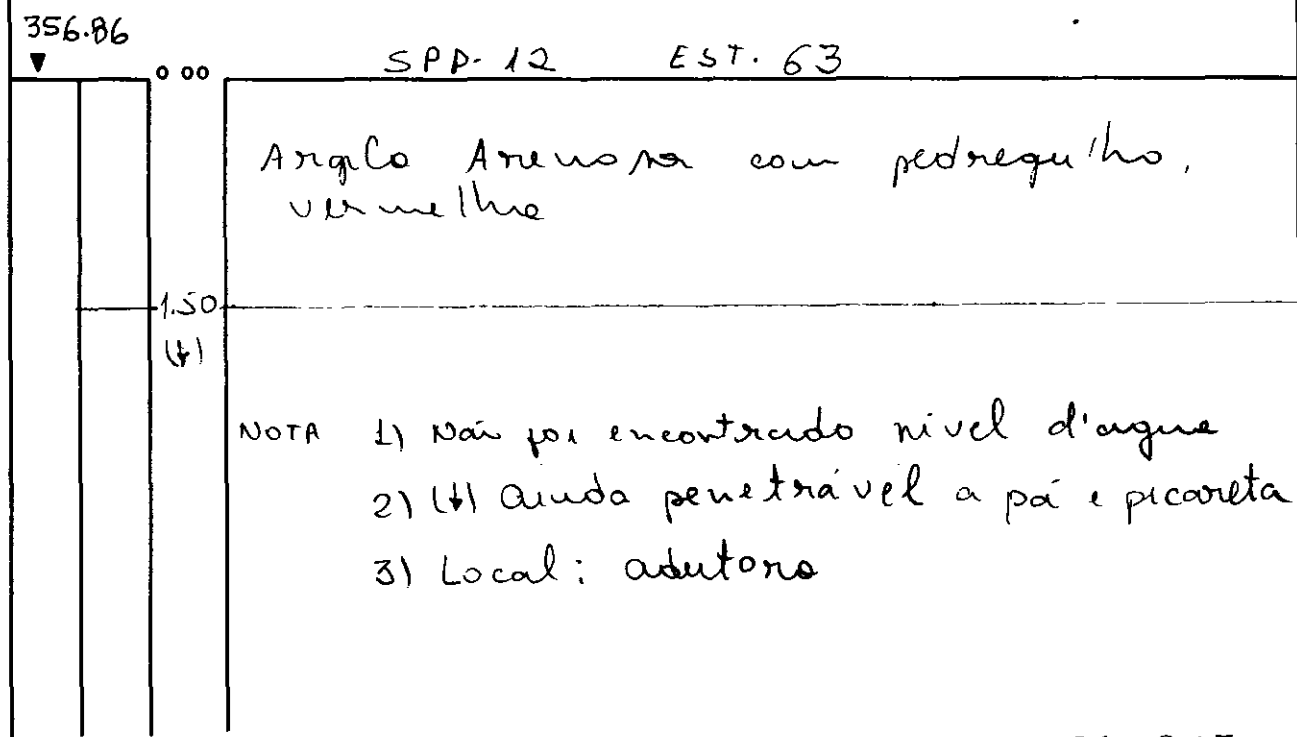 356.86
SPP-12 EST. 63
0 00
Argila Arenosa com pedregulho,
vermelha
1.50
(↓)
NOTA 1) Não foi encontrado nivel d'agua
2) (↓) Ainda penetrável a pá e picareta
3) Local: adutora